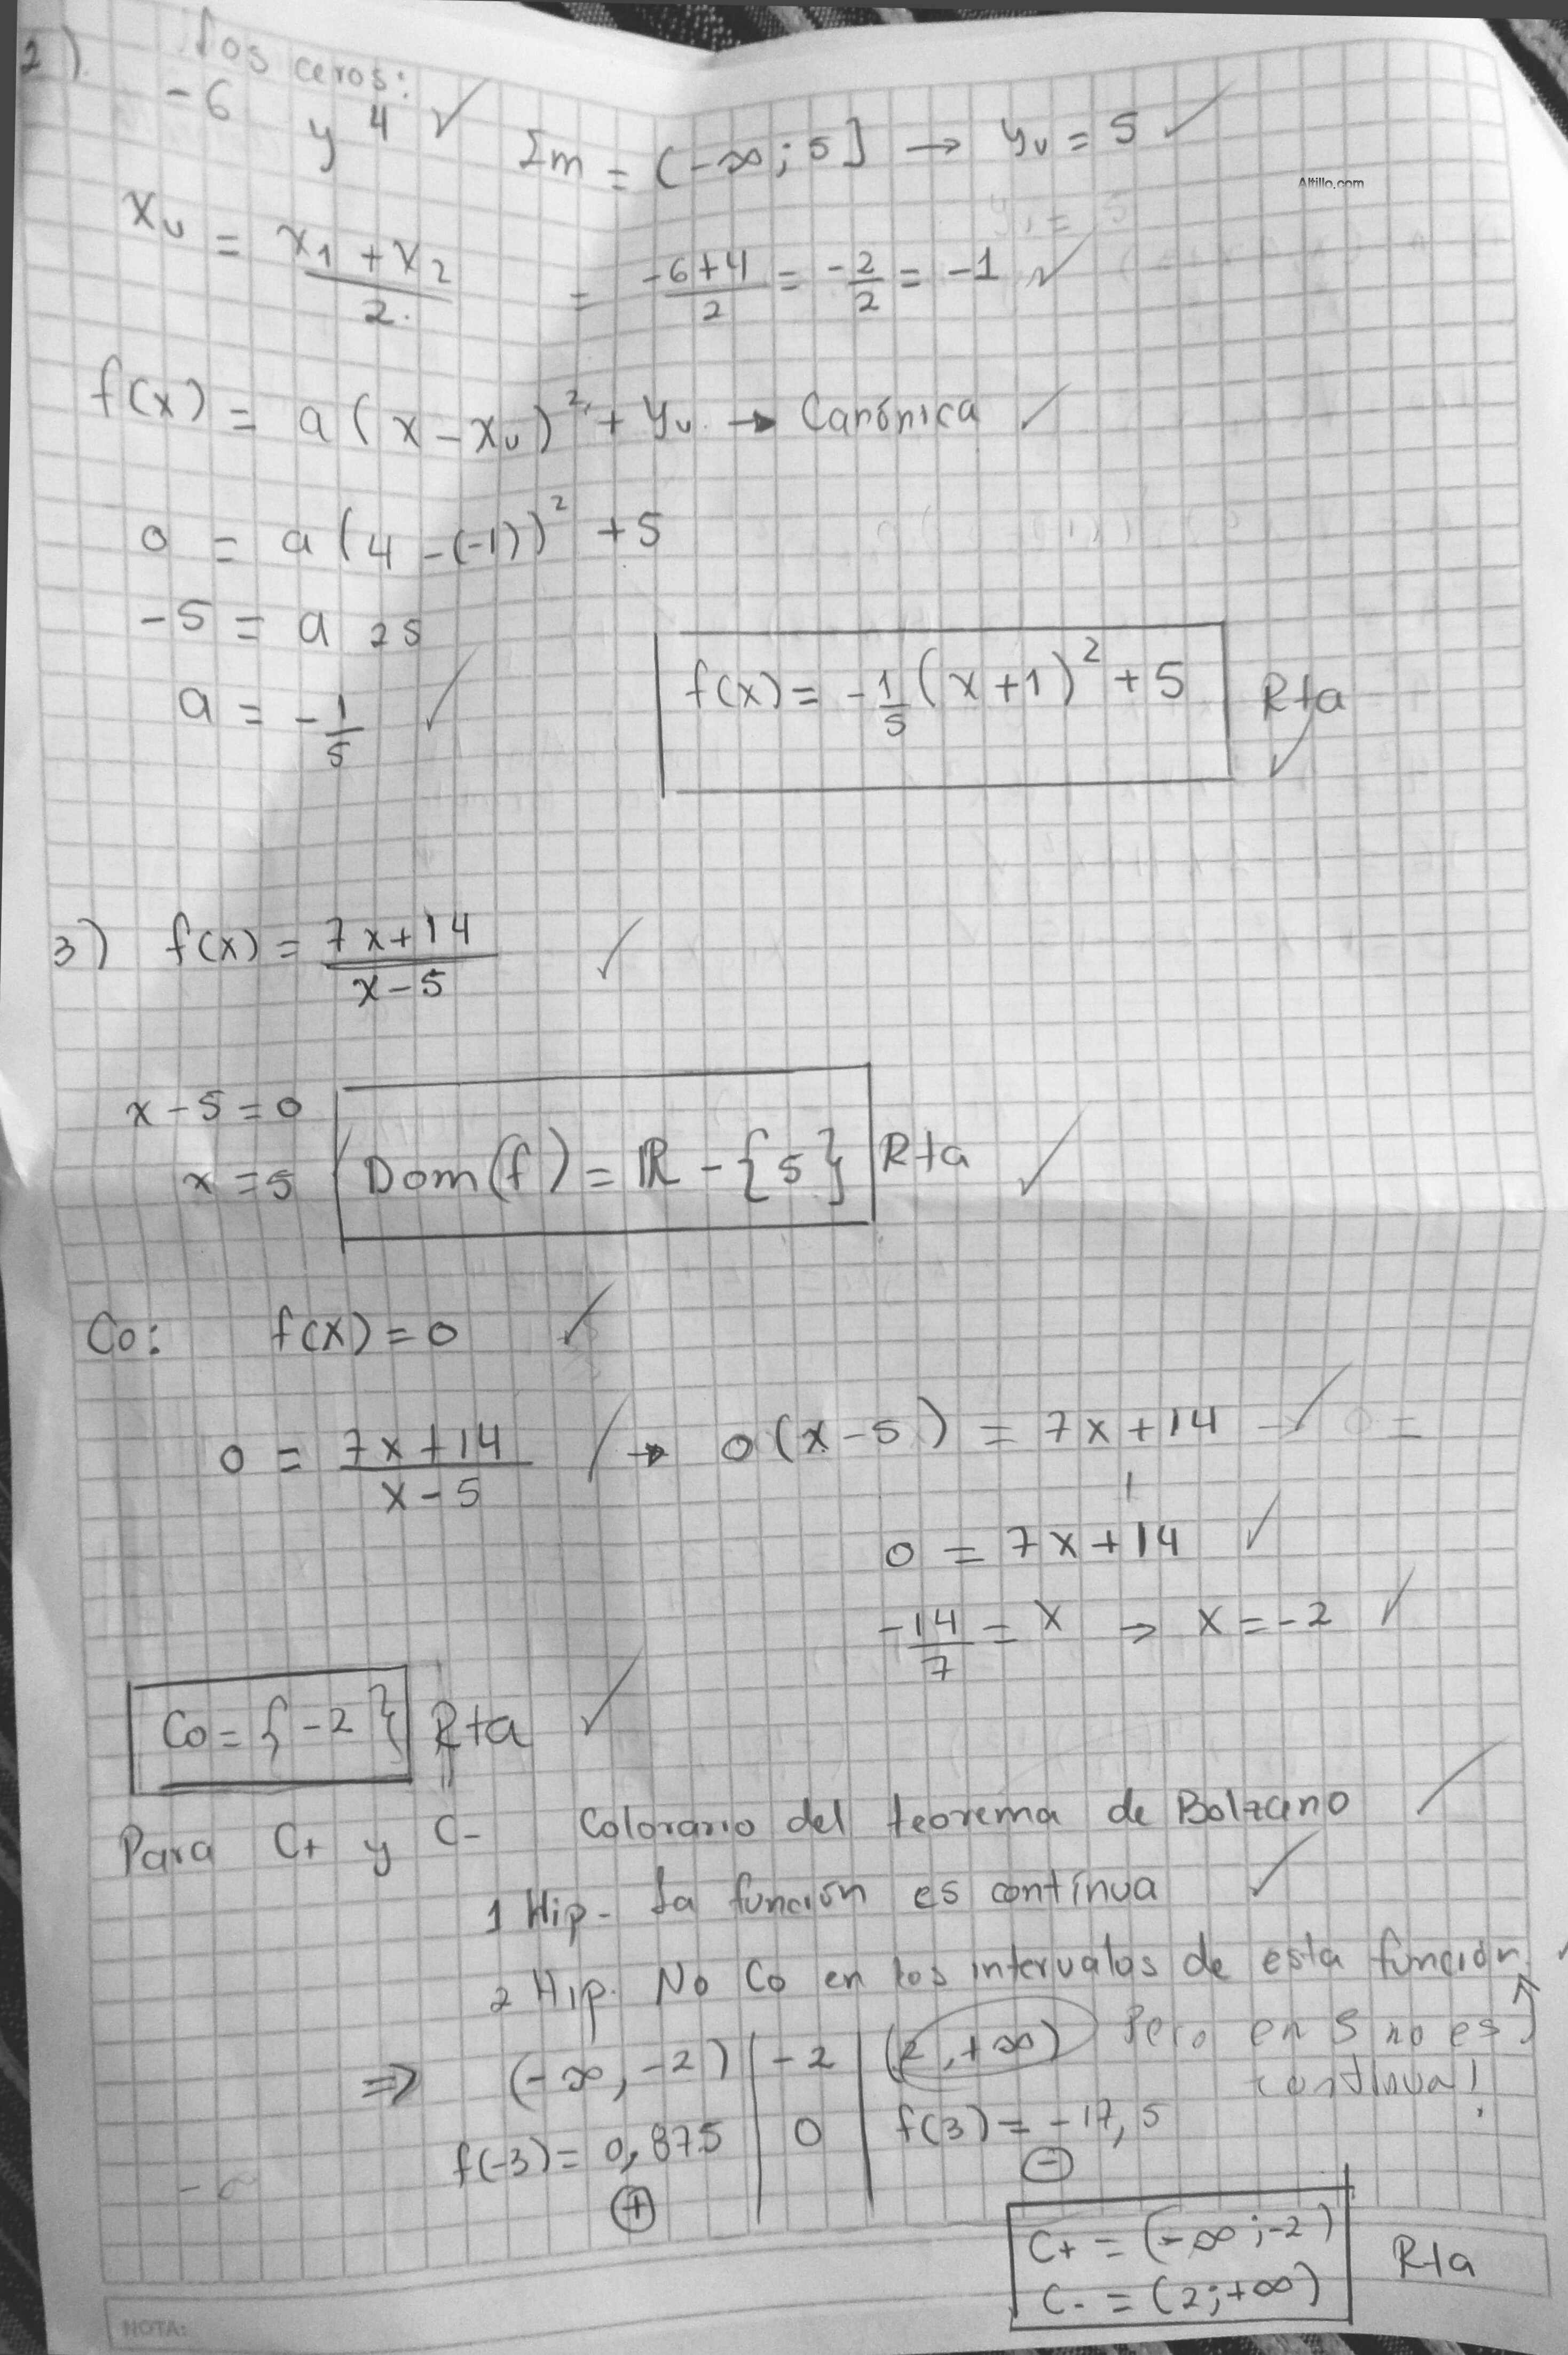 2) Los ceros:
-6 y 4 ✓ Im = (-∞; 5] → yv = 5 ✓
Altillo.com
xv = x1 + x2 / 2 = -6+4 / 2 = -2/2 = -1 ✓
f(x) = a(x - xv)² + yv → Canónica ✓
0 = a(4 - (-1))² + 5
-5 = a 25
a = -1/5 ✓
f(x) = -1/5 (x+1)² + 5 Rta ✓
3) f(x) = 7x+14 / x-5 ✓
x - 5 = 0
x = 5 Dom(f) = ℝ - {5} Rta ✓
Co: f(x) = 0 ✓
0 = 7x+14 / x-5 ✓ → 0(x-5) = 7x+14 ✓ 0 =
0 = 7x+14 ✓
-14/7 = x → x = -2 ✓
Co = {-2} Rta ✓
Para C+ y C- Colorario del teorema de Bolzano ✓
1 Hip- La función es contínua ✓
2 Hip. No Co en los intervalos de esta función.
⇒ (-∞, -2) | -2 | (2, +∞) Pero en 5 no es
continua!
f(-3) = 0,875 | 0 | f(3) = -17,5
⊕ ⊖
C+ = (-∞; -2)
C- = (2; +∞) Rta
NOTA: